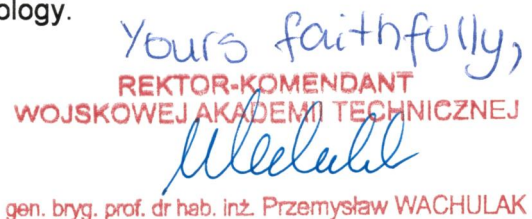 ology.
Yours faithfully,
REKTOR-KOMENDANT
WOJSKOWEJ AKADEMII TECHNICZNEJ
gen. bryg. prof. dr hab. inż. Przemysław WACHULAK